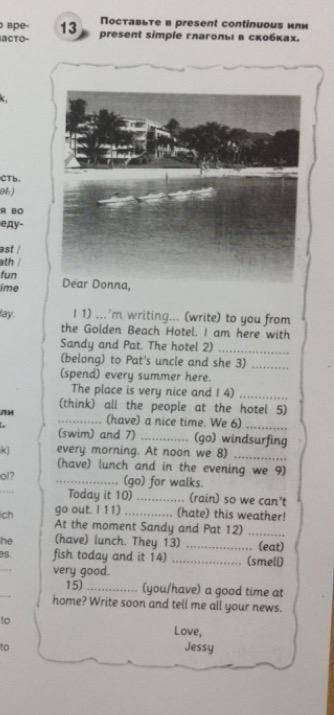 о вре-
асто-
k,
сть.
я во
еду-
ast /
ath /
fun
ime
day.
ли
k)
ol?
ich
he
es.
to
to
13
Поставьте в present continuous или
present simple глаголы в скобках.
Dear Donna,
I 1) ...'m writing... (write) to you from
the Golden Beach Hotel. I am here with
Sandy and Pat. The hotel 2) ..............
(belong) to Pat's uncle and she 3) ..............
(spend) every summer here.
The place is very nice and I 4) ..............
(think) all the people at the hotel 5)
.............. (have) a nice time. We 6) ..............
(swim) and 7) .............. (go) windsurfing
every morning. At noon we 8) ..............
(have) lunch and in the evening we 9)
.............. (go) for walks.
Today it 10) .............. (rain) so we can't
go out. I 11) .............. (hate) this weather!
At the moment Sandy and Pat 12) ..............
(have) lunch. They 13) .............. (eat)
fish today and it 14) .............. (smell)
very good.
15) .............. (you/have) a good time at
home? Write soon and tell me all your news.
Love,
Jessy